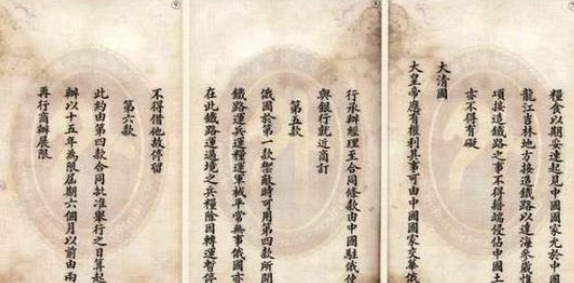 糧食以期妥速起見中國國家允於中國
龍江吉林地方接造鐵路以達海參崴惟
項接造鐵路之事不得藉端侵佔中國土
亦不得有礙
大清國
大皇帝應有權利其事可由中國國家交華俄
行承辦經理至合同條款由中國駐俄使
與銀行就近商訂
第五款
俄國於第一款禦敵時可用第四款所開
鐵路運兵運糧運軍械平常無事俄國亦
在此鐵路運過境之兵糧除因轉運暫停
不得借他故停留
第六款
此約由第四款合同批准舉行之日算起
辦以十五年為限屆期六個月以前由兩
再行商辦展限